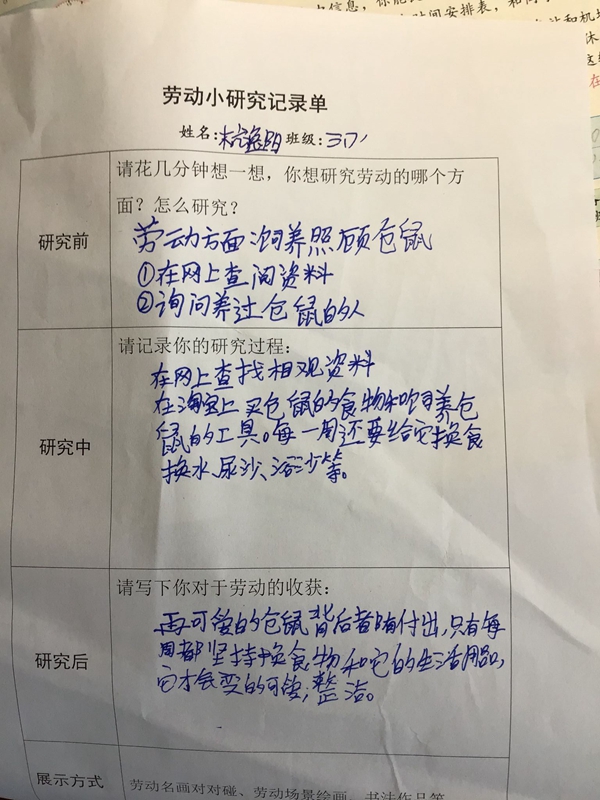 劳动小研究记录单
姓名:杭逸阳 班级:三(7)
研究前
请花几分钟想一想，你想研究劳动的哪个方
面？怎么研究？
劳动方面饲养照顾仓鼠
①在网上查阅资料
②询问养过仓鼠的人
研究中
请记录你的研究过程：
在网上查找相观资料
在淘宝上买仓鼠的食物和饲养仓
鼠的工具。每一周还要给它换食
换水、尿沙、浴沙等。
研究后
请写下你对于劳动的收获：
再可爱的仓鼠背后都有付出,只有每
周都坚持换食物和它的生活用品,
它才会变的可爱,整洁。
展示方式
劳动名画对对碰、劳动场景绘画、书法作品等